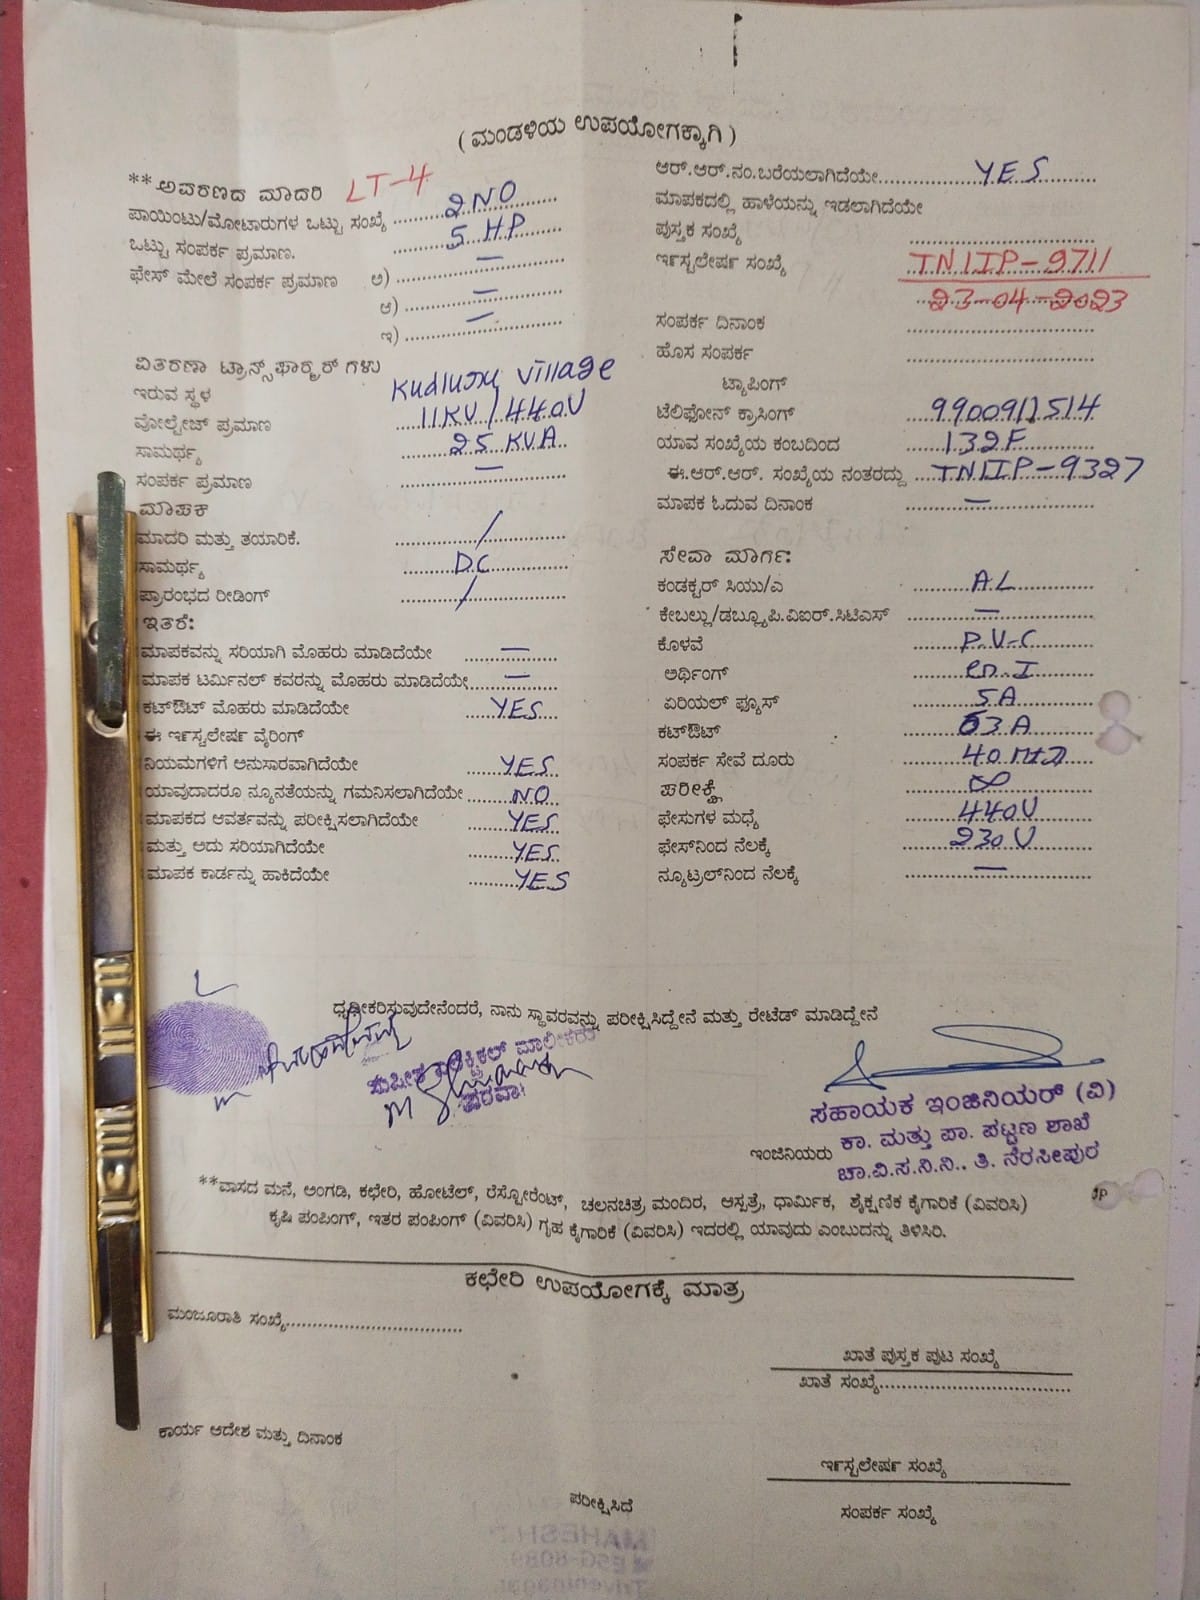 ( ಮಂಡಳಿಯ ಉಪಯೋಗಕ್ಕಾಗಿ )
**ಆವರಣದ ಮಾದರಿ LT-4
ಪಾಯಿಂಟು/ಮೋಟಾರುಗಳ ಒಟ್ಟು ಸಂಖ್ಯೆ 2NO
ಒಟ್ಟು ಸಂಪರ್ಕ ಪ್ರಮಾಣ. 5 HP
ಫೇಸ್ ಮೇಲೆ ಸಂಪರ್ಕ ಪ್ರಮಾಣ ಅ) —
ಆ) —
ಇ) —
ವಿತರಣಾ ಟ್ರಾನ್ಸ್‌ಫಾರ್ಮರ್ ಗಳು
ಇರುವ ಸ್ಥಳ Kudluru village
ವೋಲ್ಟೇಜ್ ಪ್ರಮಾಣ 11KV/440V
ಸಾಮರ್ಥ್ಯ 25 KVA
ಸಂಪರ್ಕ ಪ್ರಮಾಣ —
ಮಾಪಕ
ಮಾದರಿ ಮತ್ತು ತಯಾರಿಕೆ. /
ಸಾಮರ್ಥ್ಯ DC
ಪ್ರಾರಂಭದ ರೀಡಿಂಗ್ /
ಇತರೆ:
ಮಾಪಕವನ್ನು ಸರಿಯಾಗಿ ಮೊಹರು ಮಾಡಿದೆಯೇ —
ಮಾಪಕ ಟರ್ಮಿನಲ್ ಕವರನ್ನು ಮೊಹರು ಮಾಡಿದೆಯೇ —
ಕಟ್‌ಔಟ್ ಮೊಹರು ಮಾಡಿದೆಯೇ YES
ಈ ಇನ್‌ಸ್ಟಲೇಷನ್ ವೈರಿಂಗ್
ನಿಯಮಗಳಿಗೆ ಅನುಸಾರವಾಗಿದೆಯೇ YES
ಯಾವುದಾದರೂ ನ್ಯೂನತೆಯನ್ನು ಗಮನಿಸಲಾಗಿದೆಯೇ NO
ಮಾಪಕದ ಆವರ್ತವನ್ನು ಪರೀಕ್ಷಿಸಲಾಗಿದೆಯೇ YES
ಮತ್ತು ಅದು ಸರಿಯಾಗಿದೆಯೇ YES
ಮಾಪಕ ಕಾರ್ಡನ್ನು ಹಾಕಿದೆಯೇ YES
ಆರ್.ಆರ್.ನಂ.ಬರೆಯಲಾಗಿದೆಯೇ YES
ಮಾಪಕದಲ್ಲಿ ಹಾಳೆಯನ್ನು ಇಡಲಾಗಿದೆಯೇ
ಪುಸ್ತಕ ಸಂಖ್ಯೆ
ಇನ್‌ಸ್ಟಲೇಷನ್ ಸಂಖ್ಯೆ TNIIP-9711
23-04-2023
ಸಂಪರ್ಕ ದಿನಾಂಕ
ಹೊಸ ಸಂಪರ್ಕ
ಟ್ಯಾಪಿಂಗ್
ಟೆಲಿಫೋನ್ ಕ್ರಾಸಿಂಗ್ 9900911514
ಯಾವ ಸಂಖ್ಯೆಯ ಕಂಬದಿಂದ 132F
ಈ.ಆರ್.ಆರ್. ಸಂಖ್ಯೆಯ ನಂತರದ್ದು TNIIP-9327
ಮಾಪಕ ಓದುವ ದಿನಾಂಕ —
ಸೇವಾ ಮಾರ್ಗ:
ಕಂಡಕ್ಟರ್ ಸಿಯು/ಎ AL
ಕೇಬಲ್ಲು/ಡಬ್ಲ್ಯೂಪಿ.ವಿಐಆರ್.ಸಿಟಿಎಸ್ —
ಕೊಳವೆ P.V-C
ಅರ್ಥಿಂಗ್
ಏರಿಯಲ್ ಫ್ಯೂಸ್ 5A
ಕಟ್‌ಔಟ್ 63A
ಸಂಪರ್ಕ ಸೇವೆ ದೂರು 40
ಪರೀಕ್ಷೆ ∞
ಫೇಸುಗಳ ಮಧ್ಯೆ 440V
ಫೇಸ್‌ನಿಂದ ನೆಲಕ್ಕೆ 230V
ನ್ಯೂಟ್ರಲ್‌ನಿಂದ ನೆಲಕ್ಕೆ —
ಧೃಡೀಕರಿಸುವುದೇನೆಂದರೆ, ನಾನು ಸ್ಥಾವರವನ್ನು ಪರೀಕ್ಷಿಸಿದ್ದೇನೆ ಮತ್ತು ರೇಟೆಡ್ ಮಾಡಿದ್ದೇನೆ
ಮಾಲೀಕರು
ಸಹಾಯಕ ಇಂಜಿನಿಯರ್ (ವಿ)
ಇಂಜಿನಿಯರು ಕಾ. ಮತ್ತು ಪಾ. ಪಟ್ಟಣ ಶಾಖೆ
ಚಾ.ವಿ.ಸ.ನಿ.ನಿ., ತಿ. ನರಸೀಪುರ
**ವಾಸದ ಮನೆ, ಅಂಗಡಿ, ಕಛೇರಿ, ಹೋಟೆಲ್, ರೆಸ್ಟೋರೆಂಟ್, ಚಲನಚಿತ್ರ ಮಂದಿರ, ಆಸ್ಪತ್ರೆ, ಧಾರ್ಮಿಕ, ಶೈಕ್ಷಣಿಕ ಕೈಗಾರಿಕೆ (ವಿವರಿಸಿ)
ಕೃಷಿ ಪಂಪಿಂಗ್, ಇತರ ಪಂಪಿಂಗ್ (ವಿವರಿಸಿ) ಗೃಹ ಕೈಗಾರಿಕೆ (ವಿವರಿಸಿ) ಇದರಲ್ಲಿ ಯಾವುದು ಎಂಬುದನ್ನು ತಿಳಿಸಿರಿ.
ಕಛೇರಿ ಉಪಯೋಗಕ್ಕೆ ಮಾತ್ರ
ಮಂಜೂರಾತಿ ಸಂಖ್ಯೆ
ಖಾತೆ ಪುಸ್ತಕ ಪುಟ ಸಂಖ್ಯೆ
ಖಾತೆ ಸಂಖ್ಯೆ
ಕಾರ್ಯ ಆದೇಶ ಮತ್ತು ದಿನಾಂಕ
ಇನ್‌ಸ್ಟಲೇಷನ್ ಸಂಖ್ಯೆ
ಪರೀಕ್ಷಿಸಿದೆ
ಸಂಪರ್ಕ ಸಂಖ್ಯೆ